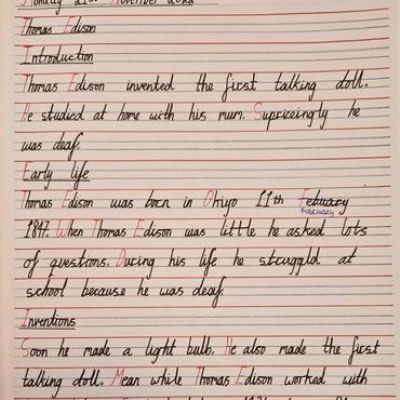 Monday 21st November 2022
Thomas Edison
Introduction
Thomas Edison invented the first talking doll.
He studied at home with his mum. Supriceingly he
was deaf.
Early life
Thomas Edison was born in Ohiyo 11th Febuary
February
1847. When Thomas Edison was little he asked lots
of questions. During his life he struggld at
school because he was deaf.
Inventions
Soon he made a light bulb. He also made the first
talking doll. Mean while Thomas Edison worked with